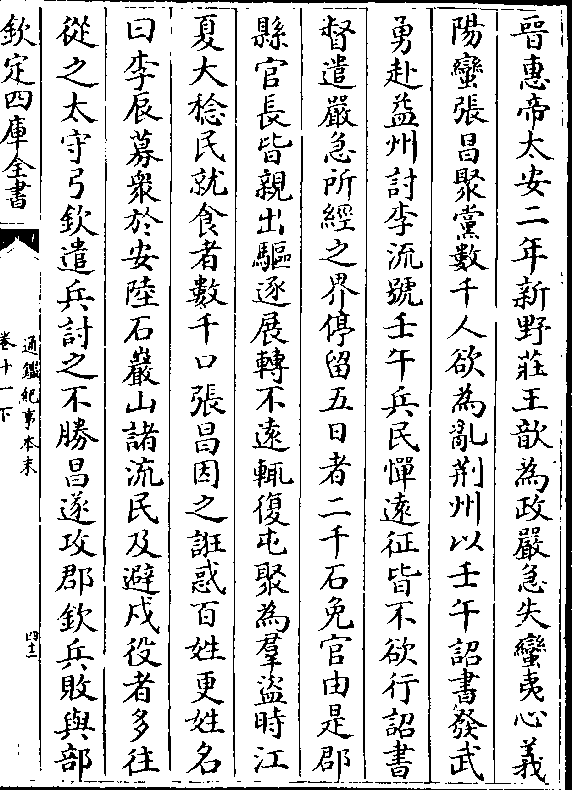 晉惠帝太安二年新野莊王歆為政嚴急失蠻夷心義
陽蠻張昌聚黨數千人欲為亂荆州以壬午詔書發武
勇赴益州討李流號壬午兵民憚遠征皆不欲行詔書
督遣嚴急所經之界停留五日者二千石免官由是郡
縣官長皆親出驅逐展轉不遠輒復屯聚為羣盜時江
夏大稔民就食者數千口張昌因之誑惑百姓更姓名
曰李辰募衆於安陸石巖山諸流民及避戍役者多往
從之太守弓欽遣兵討之不勝昌遂攻郡欽兵敗與部
欽定四庫全書
通鑑紀事本末
卷十一下
四十二